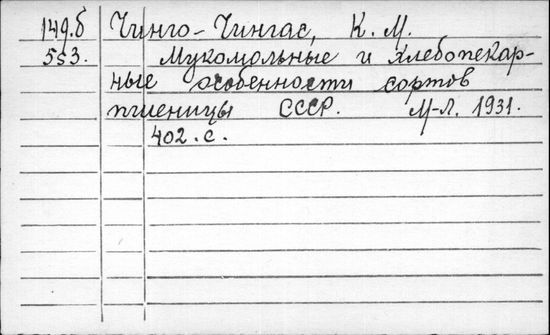 149.б Чинго-Чингас, К. М.
553. Мукомольные и хлебопекар-
ные особенности сортов
пшеницы СССР. М-Л. 1931.
402.с.